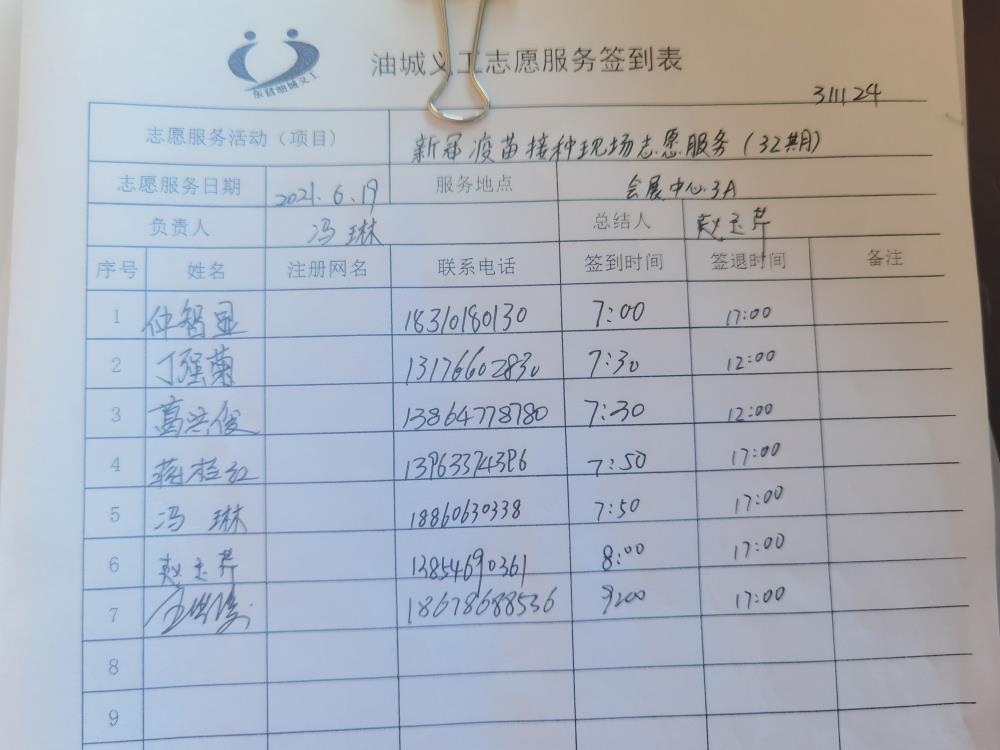 东营油城义工
油城义工志愿服务签到表
311124
志愿服务活动（项目） 新冠疫苗接种现场志愿服务（32期）
志愿服务日期 2021.6.19 服务地点 会展中心3A
负责人 冯琳 总结人 赵玉芹
序号 姓名 注册网名 联系电话 签到时间 签退时间 备注
1 仲智显 18310180130 7:00 17:00
2 丁强菊 13176602830 7:30 12:00
3 葛洪俊 13864778780 7:30 12:00
4 蒋桂红 13963374396 7:50 17:00
5 冯琳 18860630338 7:50 17:00
6 赵玉芹 13854690361 8:00 17:00
7 18678688536 9:00 17:00
8
9